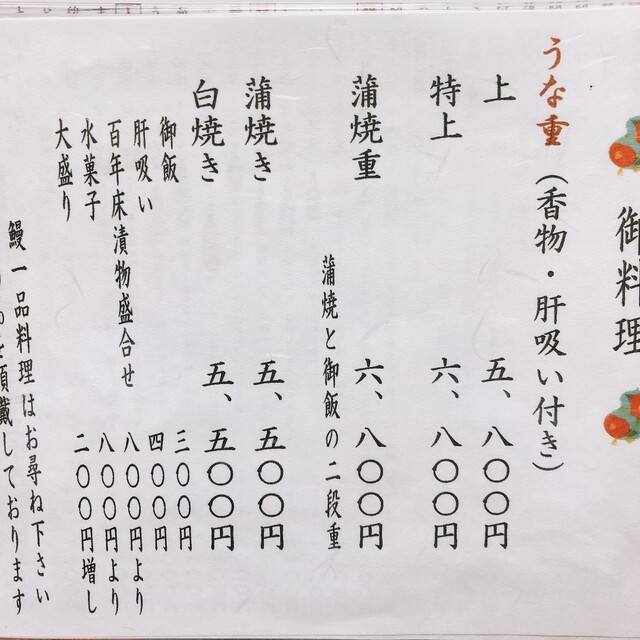 御料理
うな重（香物・肝吸い付き）
上 五、八〇〇円
特上 六、八〇〇円
蒲焼重 六、八〇〇円
蒲焼と御飯の二段重
蒲焼き 五、五〇〇円
白焼き 五、五〇〇円
御飯 三〇〇円
肝吸い 四〇〇円
百年床漬物盛合せ 八〇〇円より
水菓子 八〇〇円より
大盛り 二〇〇円増し
鰻一品料理はお尋ね下さい
を頂戴しております